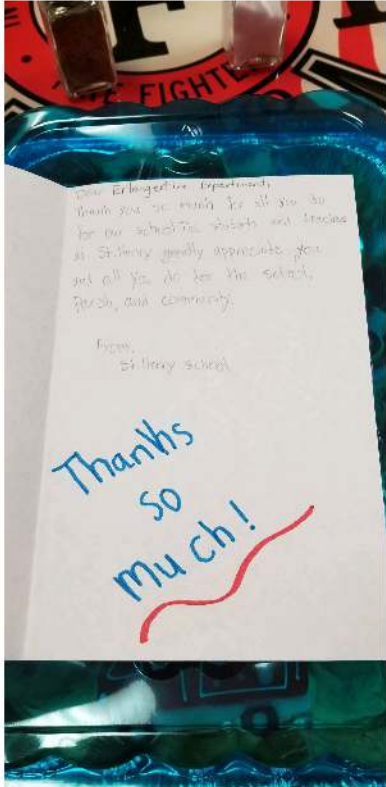 F
FIGHTE
Dear Erlanger Fire Department,
Thank you so much for all you do
for our school. The students and teachers
at St. Henry greatly appreciate you
and all you do for the school,
Parish, and community.
From,
St. Henry School
Thanks
so
much!